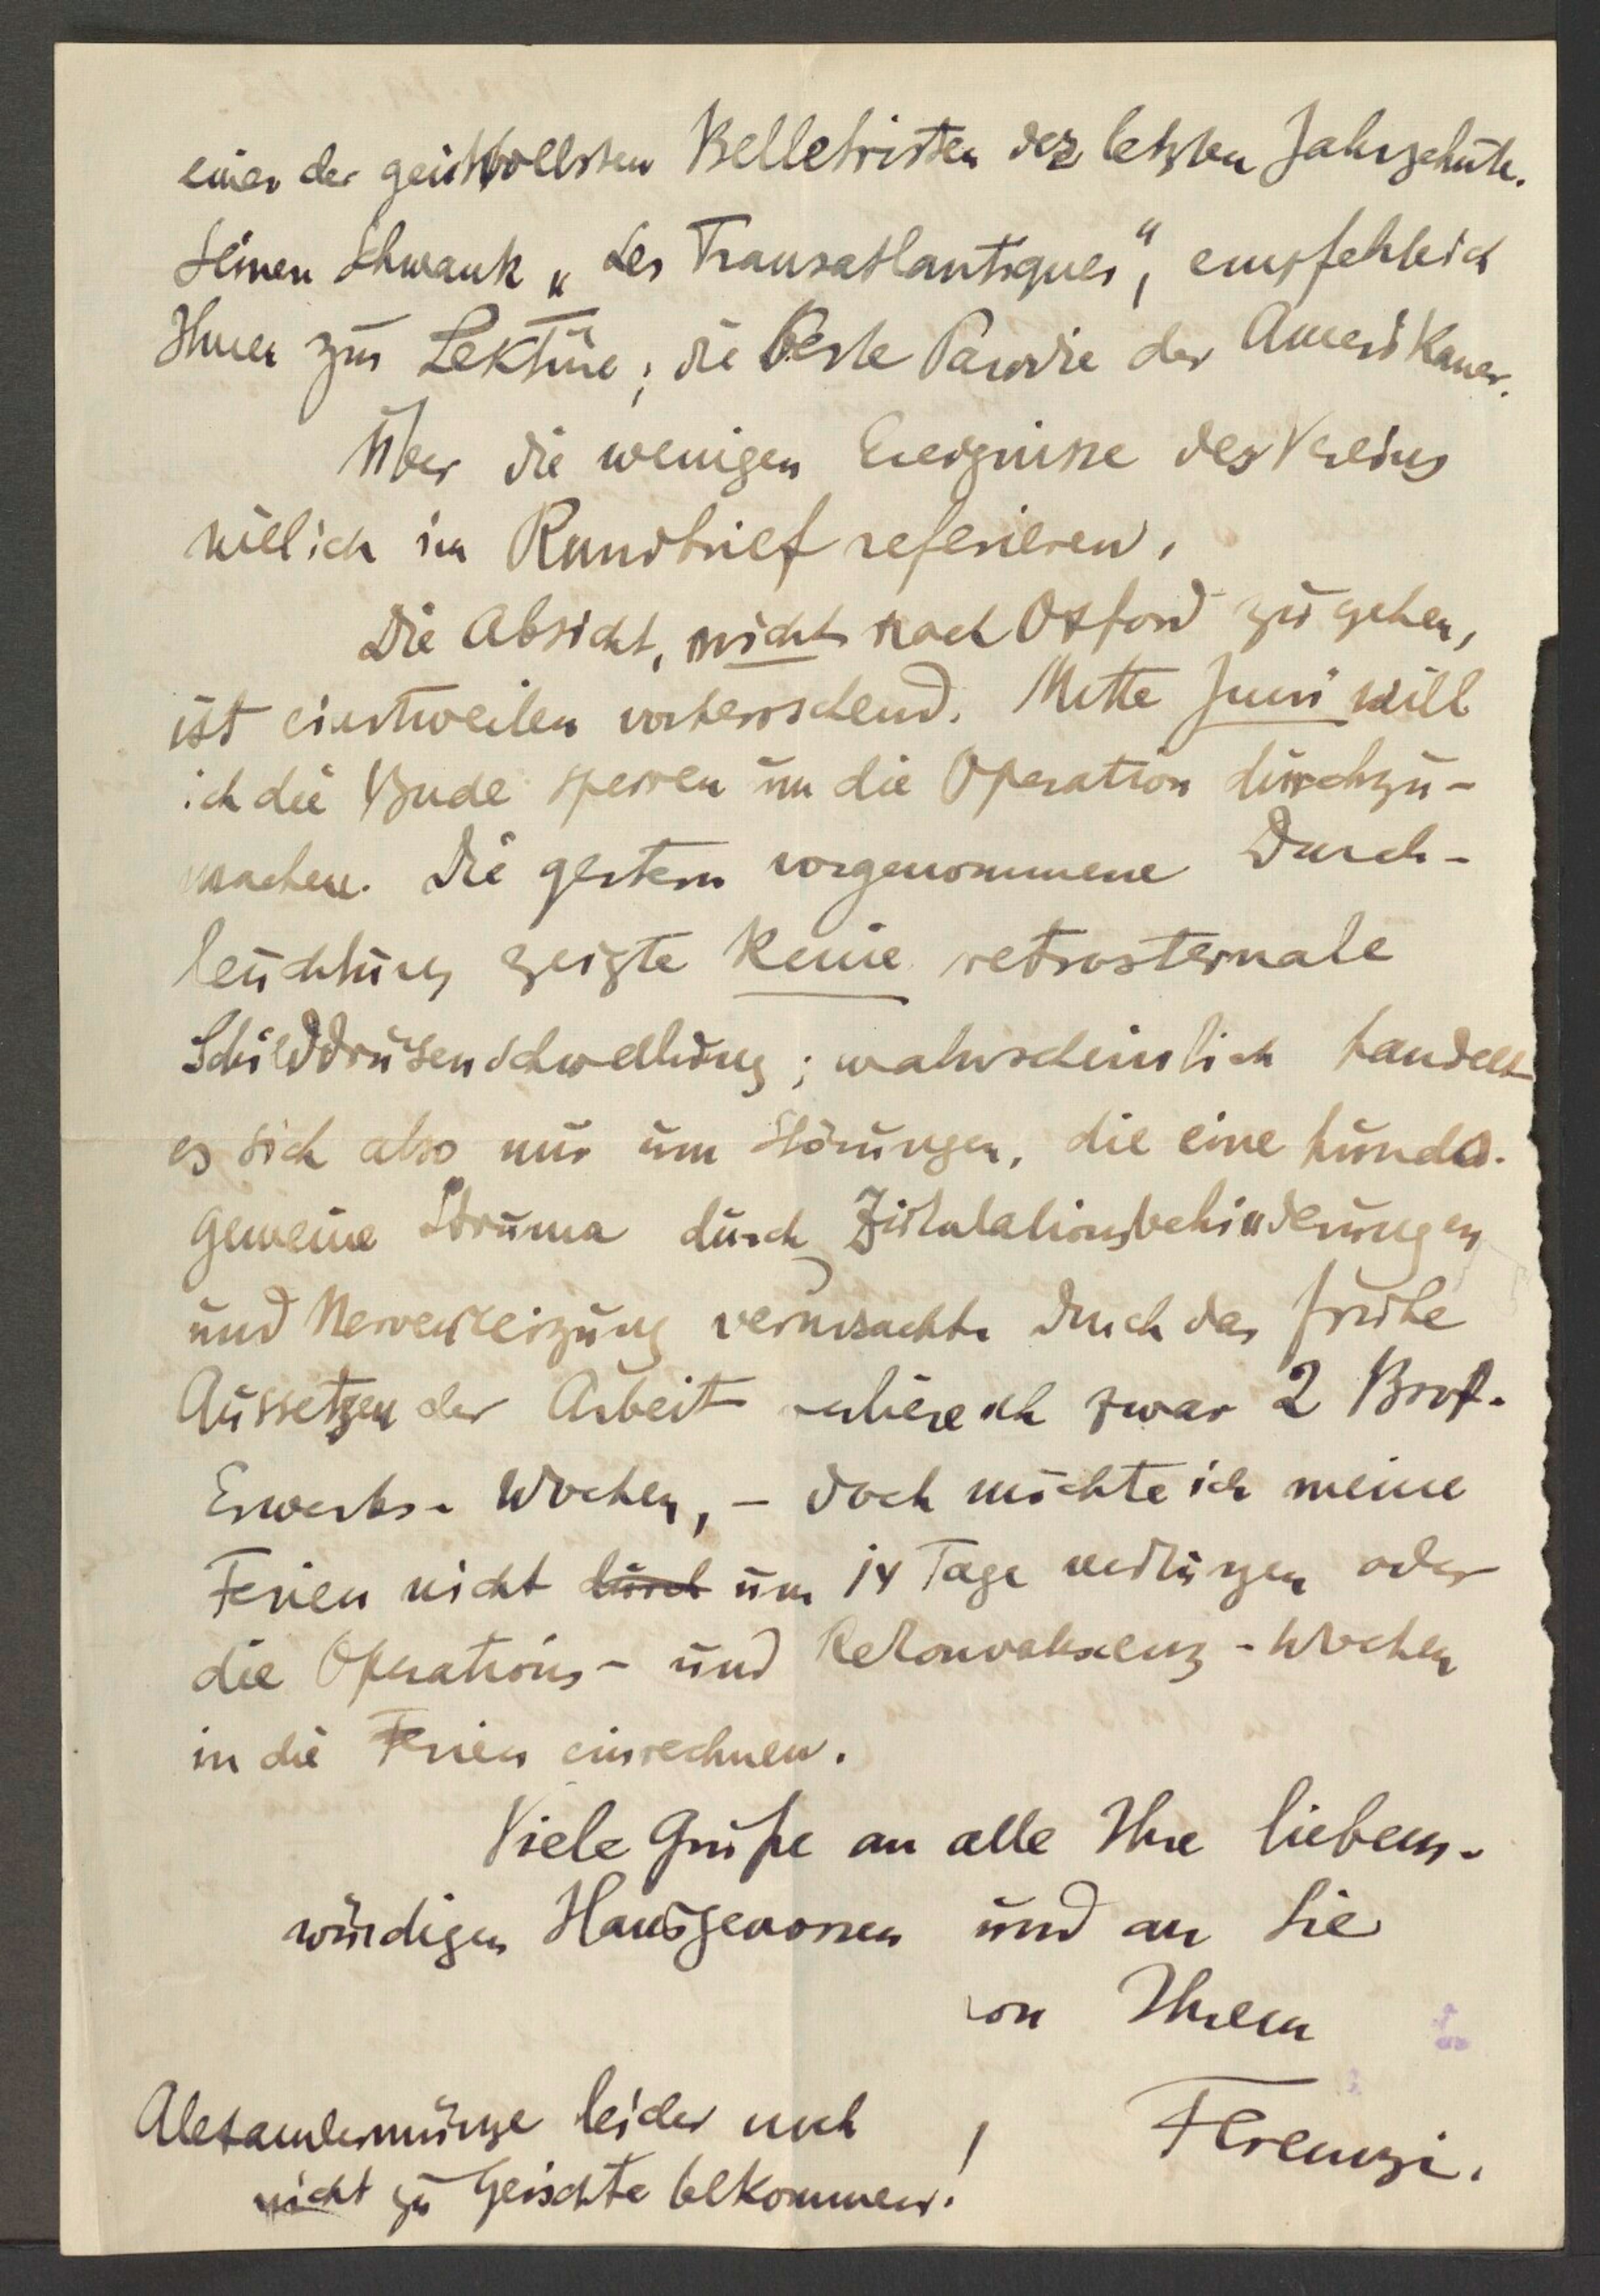 einer der geistvollsten Belletristen der letzten Jahrzehnte.
Seinen Schwank „Les Transatlantiques“, empfehle ich
Ihnen zur Lektüre; die beste Parodie der Amerikaner.
Über die wenigen Ereignisse des Vereins
will ich im Rundbrief referieren.
Die Absicht, nicht nach Oxford zu gehen,
ist einstweilen vorherrschend. Mitte Juni will
ich die Bude sperren um die Operation durchzu-
machen. Die gestern vorgenommene Durch-
leuchtung zeigte keine retrosternale
Schilddrüsenschwellung; wahrscheinlich handelt
es sich also nur um Störungen, die eine hunds-
gemeine Struma durch Zirkulationsbehinderungen
und Nervenreizung verursacht. Durch das frühe
Aussetzen der Arbeit verliere ich zwar 2 Brot-
Erwerbs-Wochen, – doch möchte ich meine
Ferien nicht durch um 14 Tage verkürzen oder
die Operations- und Rekonvaleszenz-Wochen
in die Ferien einrechnen.
Viele Grüße an alle Ihre liebens-
würdigen Hausgenossen und an Sie
von Ihrem
Ferenczi.
Alexandermünze leider noch
nicht zu Gesichte bekommen!